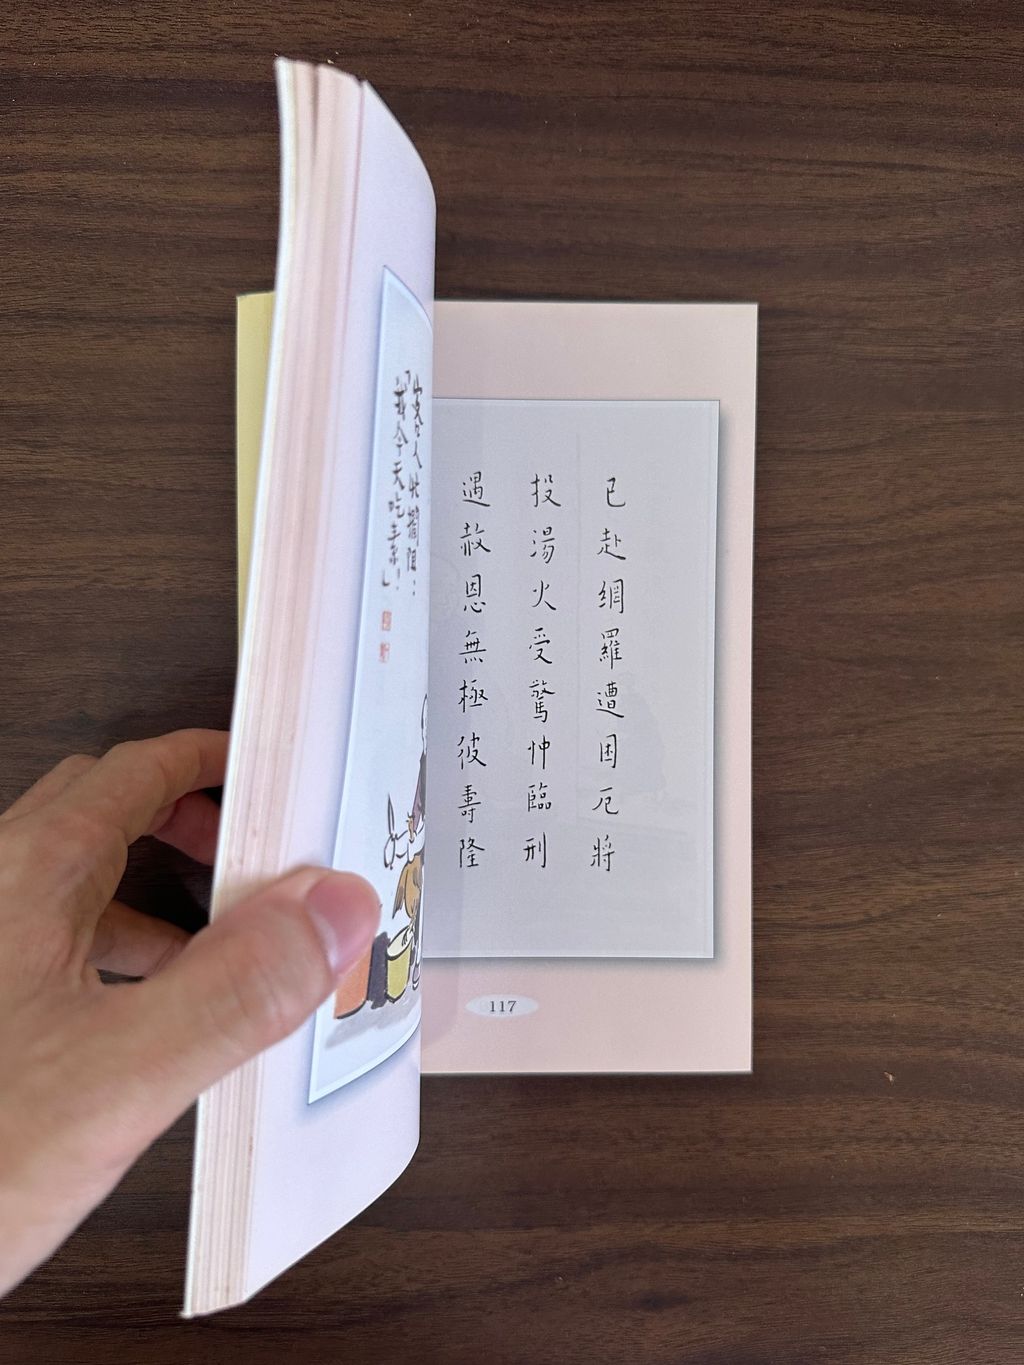 已赴網羅遭困厄將
投湯火受驚忡臨刑
遇赦恩無極彼壽隆
117
客人忙攔阻：
「我今天吃素！」